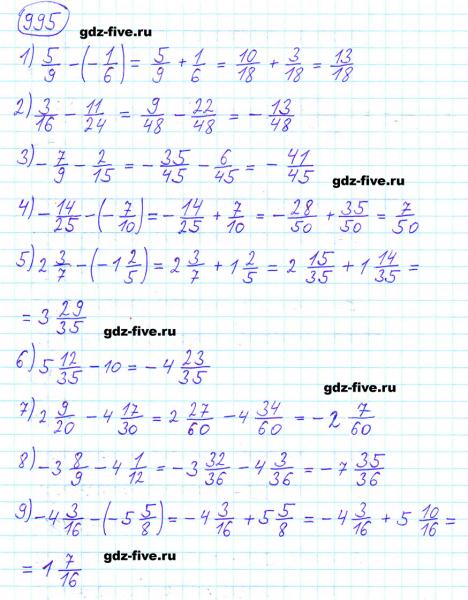 995
gdz-five.ru
1) 5/9 - (-1/6) = 5/9 + 1/6 = 10/18 + 3/18 = 13/18
2) 3/16 - 11/24 = 9/48 - 22/48 = -13/48
3) -7/9 - 2/15 = -35/45 - 6/45 = -41/45
gdz-five.ru
4) -14/25 - (-7/10) = -14/25 + 7/10 = -28/50 + 35/50 = 7/50
5) 2 3/7 - (-1 2/5) = 2 3/7 + 1 2/5 = 2 15/35 + 1 14/35 =
= 3 29/35
gdz-five.ru
6) 5 12/35 - 10 = -4 23/35
gdz-five.ru
7) 2 9/20 - 4 17/30 = 2 27/60 - 4 34/60 = -2 7/60
8) -3 8/9 - 4 1/12 = -3 32/36 - 4 3/36 = -7 35/36
9) -4 3/16 - (-5 5/8) = -4 3/16 + 5 5/8 = -4 3/16 + 5 10/16 =
= 1 7/16
gdz-five.ru